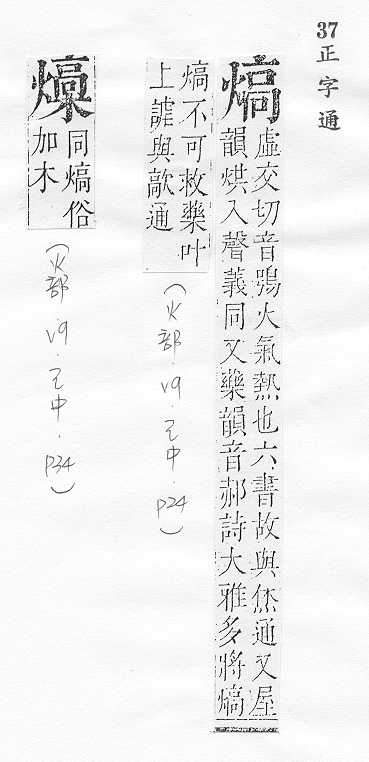 37正字通
熇
虛交切音鴞火氣熱也六書故與烋通又屋
韻烘入聲義同又藥韻音郝詩大雅多將熇
熇不可救藥叶
上謔與歊通
(火部.v9.巳中.P24)
燺
同熇俗
加木
(火部.v9.巳中.P34)